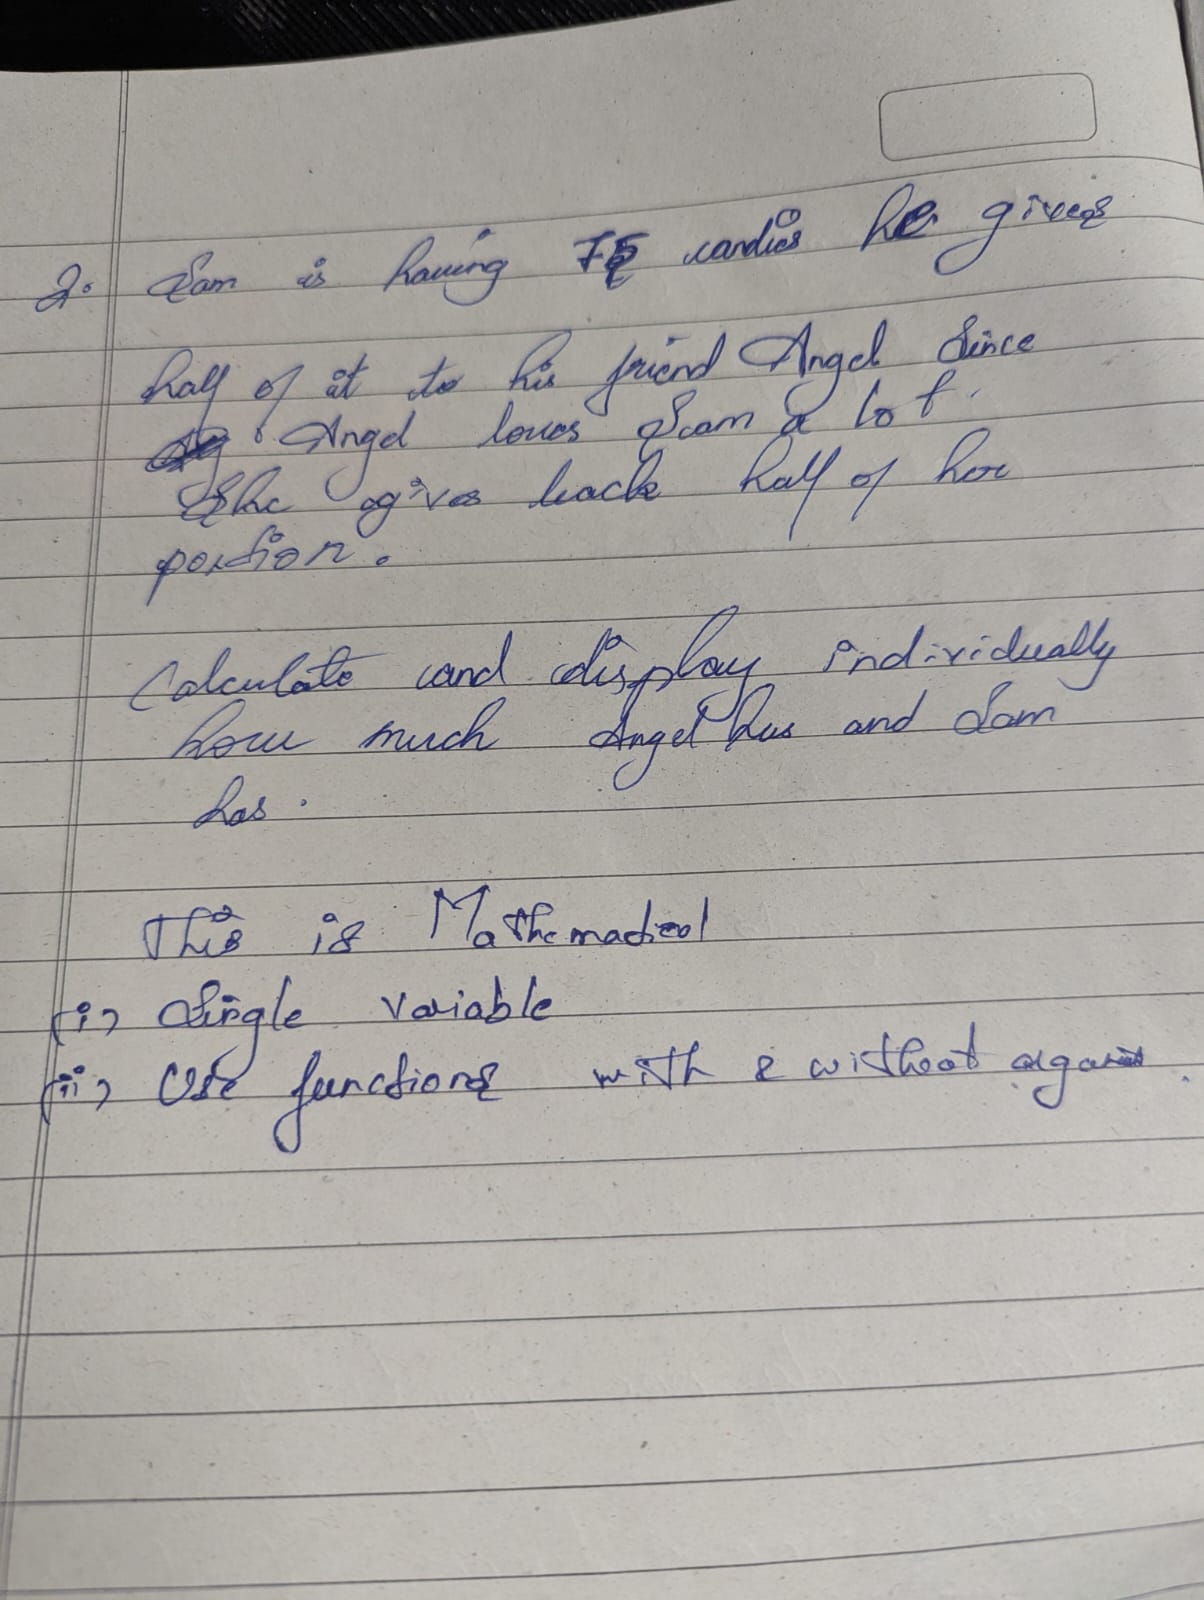 2. Sam is having 75 candies he gives
half of it to his friend Angel Since
Angel loves Sam a lot.
She gives back half of her
portion.
Calculate and display individually
how much Angel has and Sam
has.
This is Mathematical
(i) Single variable
(ii) Use functions with & without